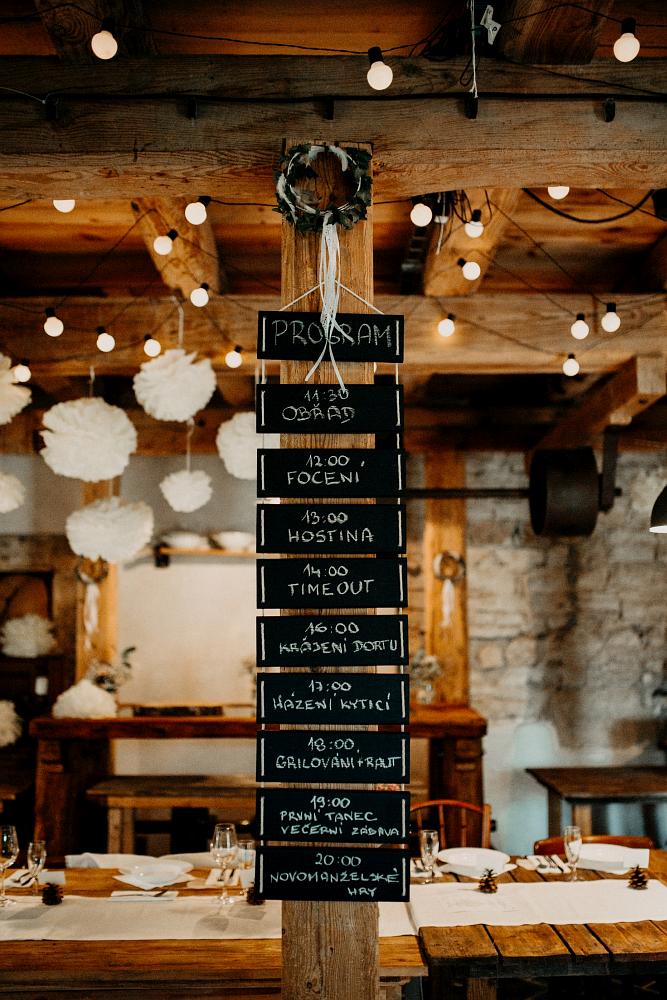 PROGRAM
11:30
OBŘAD
12:00
FOCENÍ
13:00
HOSTINA
14:00
TIMEOUT
16:00
KRÁJENÍ DORTU
17:00
HÁZENÍ KYTICÍ
18:00
GRILOVÁNÍ + RAUT
19:00
PRVNÍ TANEC
VEČERNÍ ZÁBAVA
20:00
NOVOMANŽELSKÉ
HRY